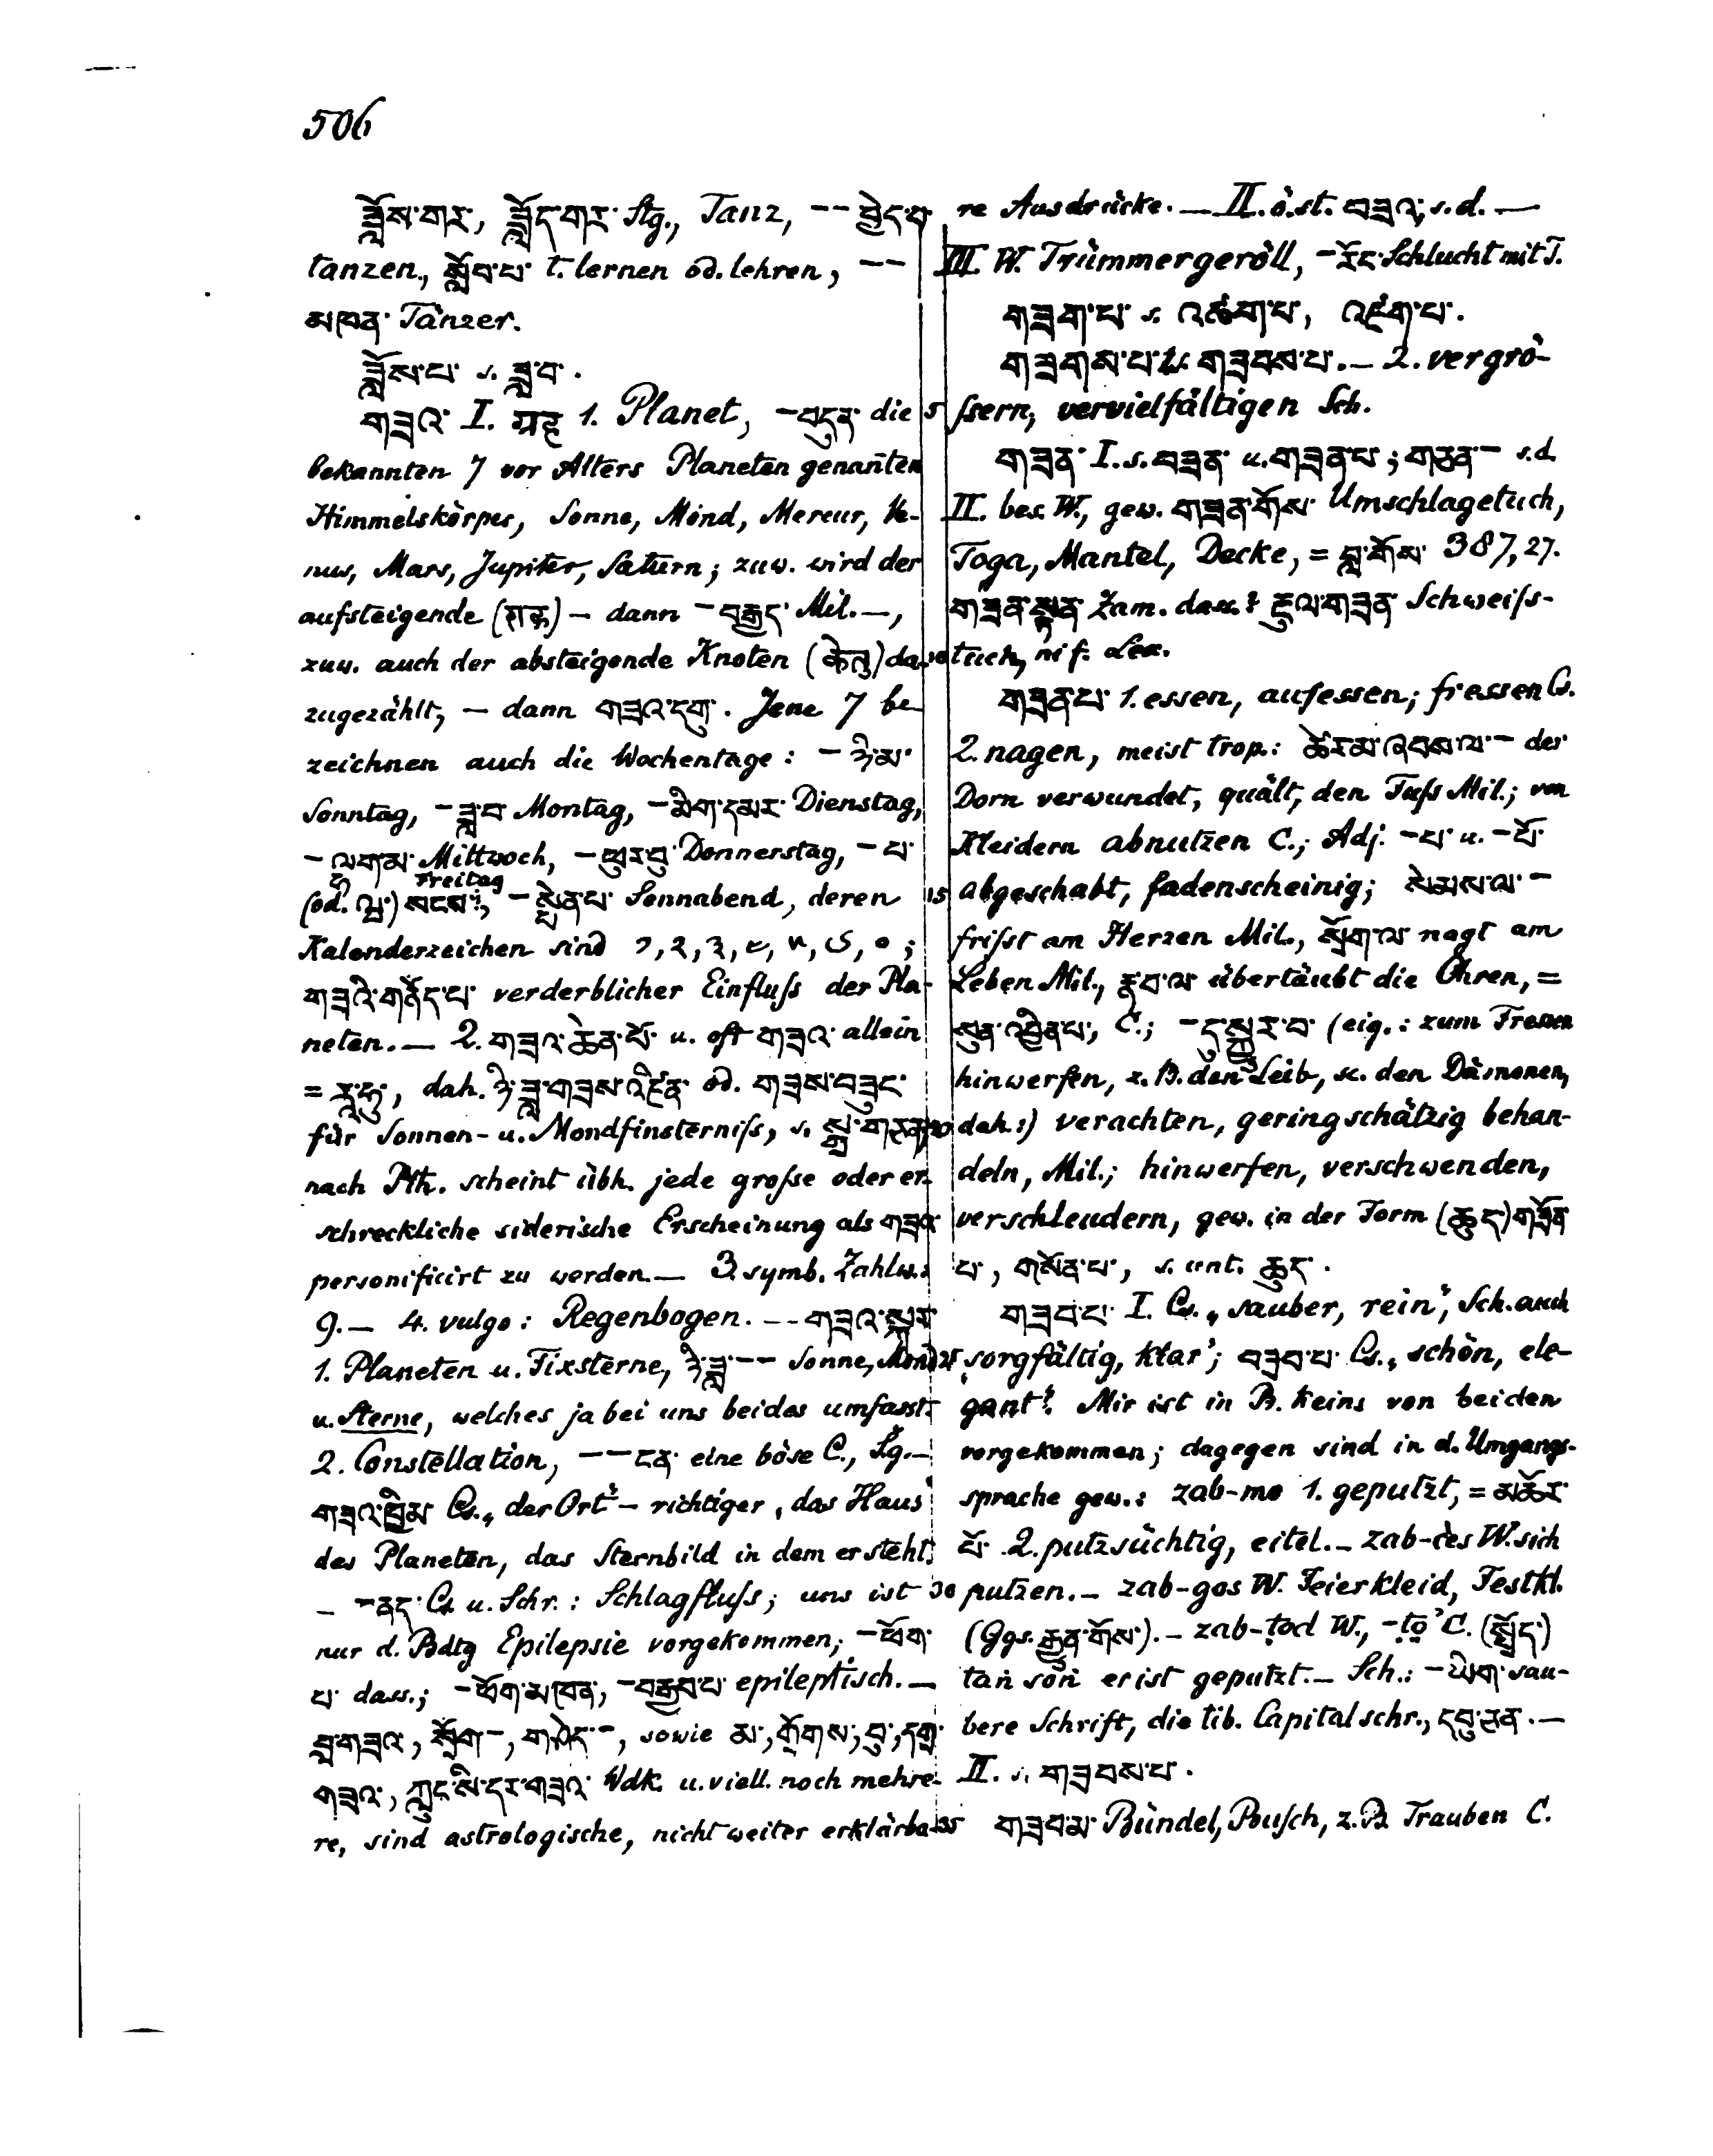 506
ཟློས་གར་, ཟློད་གར་ Stg., Tanz, -- བྱེད་པ་
tanzen, སློབ་པ་ t. lernen od. lehren, --
མཁན་ Tänzer.
ཟློས་པ་ s. ཟླ་བ་.
གཟའ་ I. ग्रह 1. Planet, -བདུན་ die
bekannten 7 vor Alters Planeten genanten
Himmelskörper, Sonne, Mond, Mercur, Ve-
nus, Mars, Jupiter, Saturn; zuw. wird der
aufsteigende () – dann -བརྒྱད་ Mil. –,
zuw. auch der absteigende Knoten (केतु) da-
zugezählt, – dann གཟའ་དགུ་. Jene 7 be-
zeichnen auch die Wochentage: -ཉི་མ་
Sonntag, -ཟླ་བ་ Montag, -མིག་དམར་ Dienstag,
-ལག་མ་ Mittwoch, -ཕུར་བུ་ Donnerstag, -པ་
(od. ལྷ་) སངས་ Freitag, -སྤེན་པ་ Sonnabend, deren
Kalenderzeichen sind १, २, ३, ४, ५, ६, ०;
གཟའི་གནོད་པ་ verderblicher Einfluſs der Pla-
neten. — 2. གཟའ་ཆེན་པོ་ u. oft གཟའ་ allein
= རཱ་ཧུ་, dah. ཉི་ཟླ་གཟས་འཛིན་ od. གཟས་བཟུང་
für Sonnen- u. Mondfinsterniſs, s. སྒྲ་གཅན་
nach Pth. scheint übh. jede groſse oder er-
schreckliche siderische Erscheinung als གཟའ་
personificirt zu werden. — 3. symb. Zahlw.:
9. — 4. vulgo: Regenbogen. -- གཟའ་སྐར་
1. Planeten u. Fixsterne, ཉི་ཟླ་-- Sonne, Mond
u. Sterne, welches ja bei uns beides umfasst.
2. Constellation, --ངན་ eine böse C., Lg. —
གཟའ་ཁྱིམ་ Cs. „der Ort“ – richtiger, das Haus
des Planeten, das Sternbild in dem er steht.
— -ནད་ Cs. u. Schr.: Schlagfluſs; uns ist
nur d. Bdtg Epilepsie vorgekommen; -ཕོག་
པ་ dass.; -ཕོག་མཁན་, -བརྒྱབ་པ་ epileptisch. —
བླ་གཟའ་, སྲོག་-, གཤེད་-, sowie མ་, གྲོགས་, བུ་, དགྲ་
གཟའ་, ཀླུང་སི་དར་གཟའ་ Wdk. u. viell. noch mehre-
re, sind astrologische, nicht weiter erklärba-
re Ausdrücke. — II. ö. st. བཟའ་, s. d. —
III. W. Trümmergeröll, -རོང་ Schlucht mit T.
གཟག་པ་ s. འཛག་པ་, འཛག་པ་.
གཟགས་པ་ 1. s. གཟབས་པ་. — 2. vergrö-
5 ſsern, vervielfältigen Sch.
གཟན་ I. s. བཟན་ u. གཟན་པ་; གཅན་- s. d.
II. bes. W., gew. གཟན་གོས་ Umschlagetuch,
Toga, Mantel, Decke, = བླ་གོས་ 387, 27.
གཟན་སྟན་ Zam. dass.? རྔུལ་གཟན་ Schweiſs-
10 tuch, ni f. Lex.
གཟན་པ་ 1. essen, aufessen; fressen Cs.
2. nagen, meist trop.: ཚེར་མ་ཞབས་ལ་- der
Dorn verwundet, quält, den Fuſs Mil.; von
Kleidern abnutzen C.; Adj. -པ་ u. -པོ་
15 abgeschabt, fadenscheinig; སེམས་ལ་-
friſst am Herzen Mil., སྲོག་ལ་ nagt am
Leben Mil., རྣ་བ་ལ་ übertäubt die Ohren, =
སུན་འབྱིན་པ་, C.; -དུ་སྐྱུར་བ་ (eig.: zum Fressen
hinwerfen, z. B. den Leib, sc. den Dämonen,
20 dah.:) verachten, geringschätzig behan-
deln, Mil.; hinwerfen, verschwenden,
verschleudern, gew. in der Form (ཆུད་) གཟོན་
པ་, གསོན་པ་, s. unt. ཆུད་.
གཟབ་པ་ I. Cs. „sauber, rein“, Sch. auch
25 „sorgfältig, klar“; བཟབ་པ་ Cs. „schön, ele-
gant“. Mir ist in B. keins von beiden
vorgekommen; dagegen sind in d. Umgangs-
sprache gew.: zab-mo 1. geputzt, = མཆོར་
པོ་ 2. putzsüchtig, eitel. — zab-čès W. sich
30 putzen. — zab-gos W. Feierkleid, Festkl.
(Ggs. རྒྱན་གོས་). — zab-ṭod W., -ṭö’ C. (སྤྲོད་)
taṅ soṅ er ist geputzt. — Sch.: -ཡིག་ sau-
bere Schrift, die tib. Capitalschr., དབུ་ཅན་. —
II. s. གཟབས་པ་.
35 གཟབ་མ་ Bündel, Pausch, z. B. Trauben C.